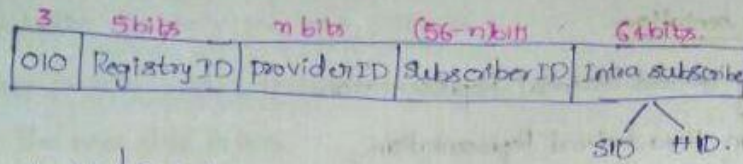 3 5bits n bits (56-n)bits 64bits.
010 Registry ID provider ID Subscriber ID Intra subscribe
SID HID.